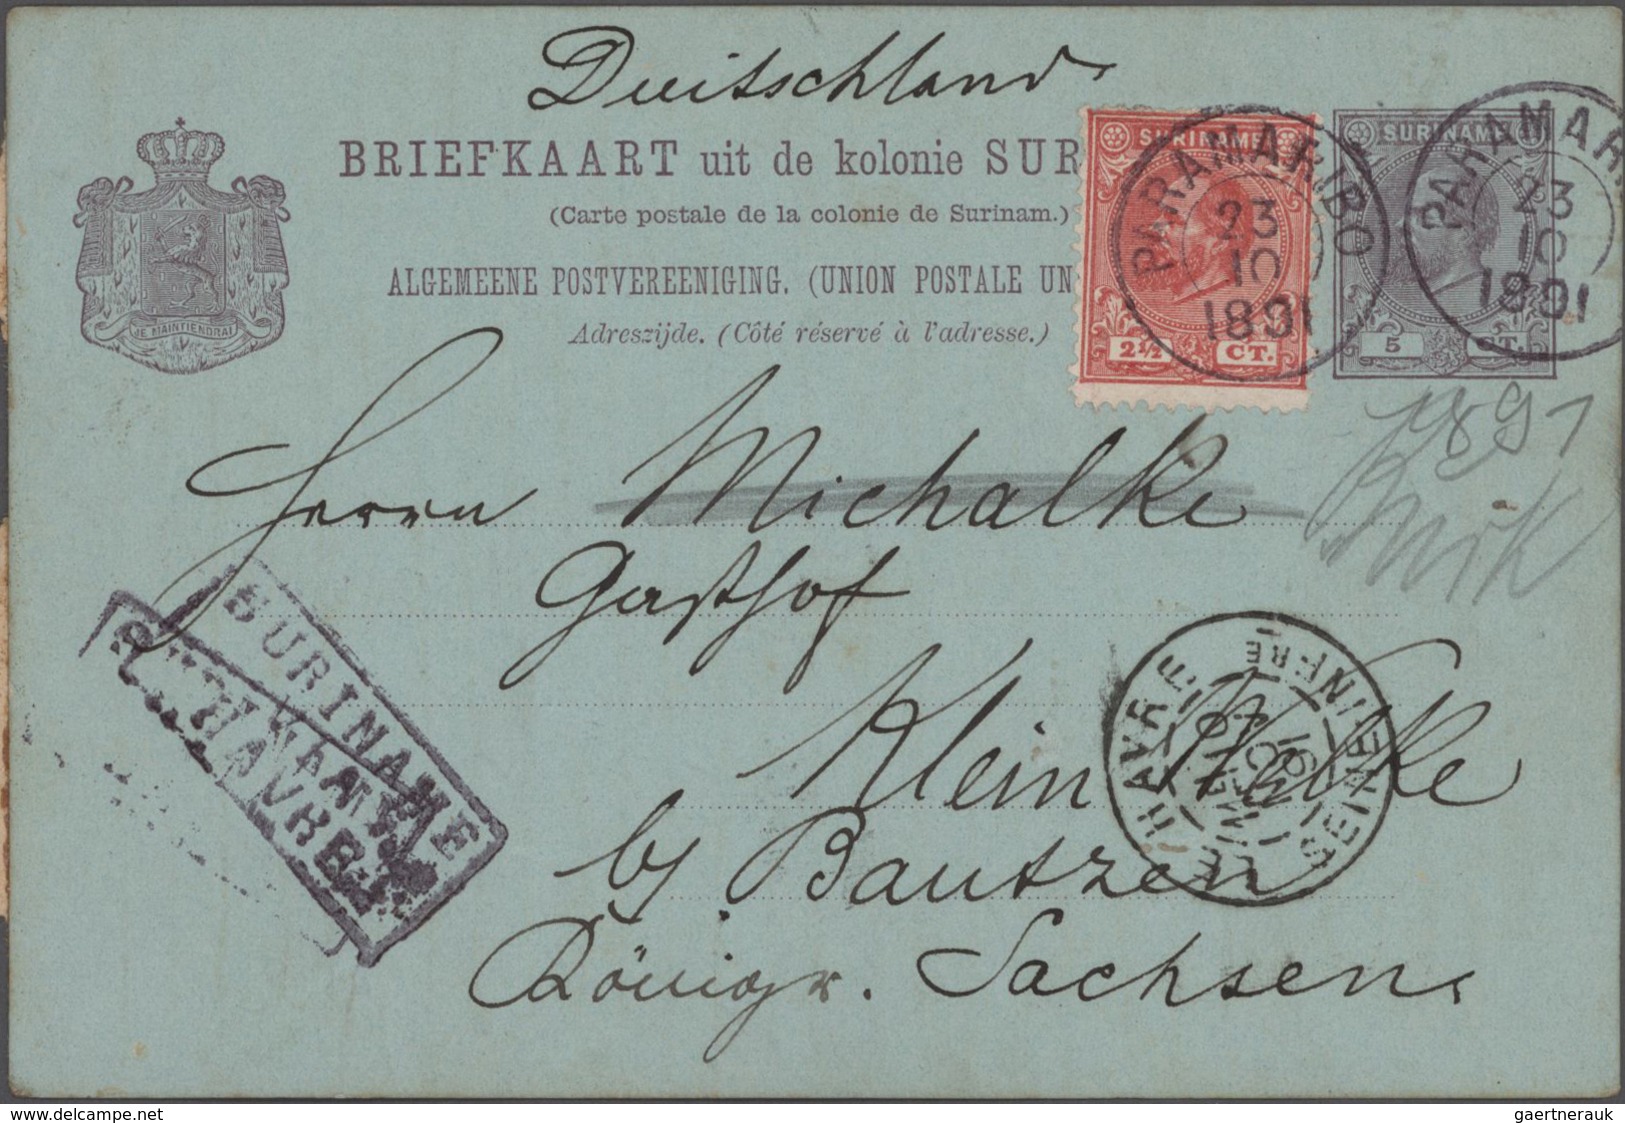 Duitschland
BRIEFKAART uit de kolonie SUR
(Carte postale de la colonie de Surinam.)
ALGEMEENE POSTVEREENIGING. (UNION POSTALE UN
Adreszijde. (Côté réservé à l'adresse.)
JE MAINTIENDRAI
SURINAME
2½ CT.
PARAMARIBO
23
10
1891
SURINAME
5 CT.
PARAMAR
23
10
1891
1891
Herrn Michalke
Gasthof
Klein Welke
b/ Bautzen
Königr. Sachsen.
SURINAME
HAVRE
LE HAVRE
SEINE INFRE
91
www.delcampe.net
gaertnerauk